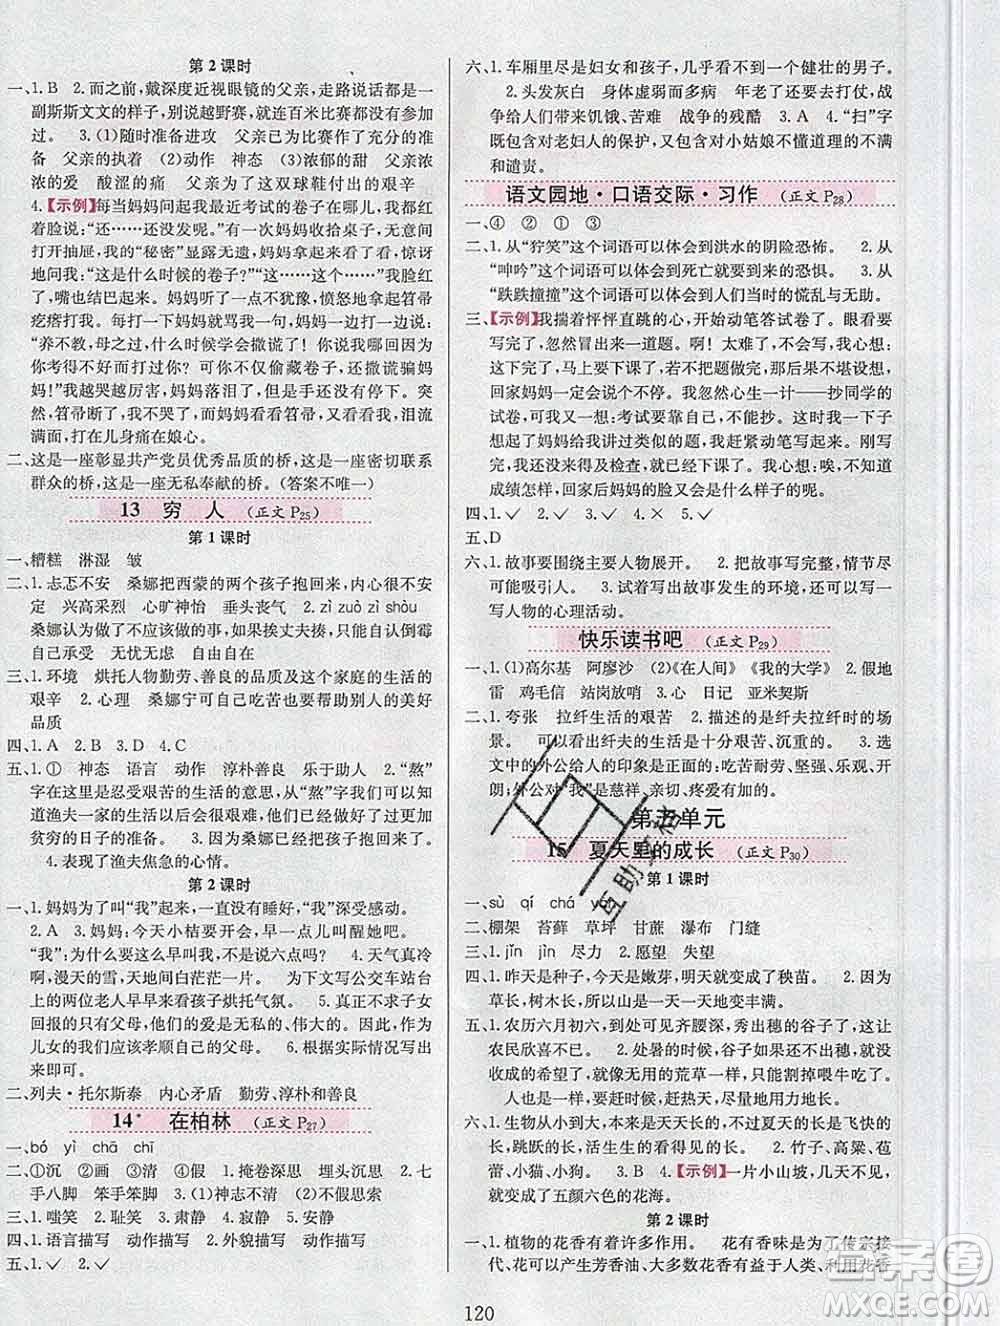 第2课时
一、1.B 2.而之前,戴深度近视眼镜的父亲,走路说话都是一
副斯斯文文的样子,别说越野赛,就连百米比赛都没有参加
过。 3.(1)随时准备进攻 父亲已为比赛作了充分的准
备 父亲的执着 (2)动作 神态 (3)浓郁的甜 父亲浓
浓的爱 酸涩的痛 父亲为了这双球鞋付出的艰辛
4.【示例】每当妈妈问起我最近考试的卷子在哪儿,我都红
着脸说:“还……还没发。”有一次妈妈收拾桌子,无意间
打开抽屉,我的“秘密”显露无遗。妈妈瞪圆了眼睛,惊讶
地问我:“这是什么时候的卷子?”“这……这……”我脸红
了,嘴也结巴起来。妈妈一点儿不犹豫,愤怒地拿起笤帚
疙瘩打我。每打一下妈妈就骂我一句,妈妈边打边说:
“养不教,母之过,什么时候学会撒谎了!你怎么可以因为
考得不好就撒谎!你可不能从偷偷藏卷子,撒谎骗妈
妈!”我越哭越厉害,妈妈落泪了,但是还没有停下。突
然,笤帚断了,我哭得更凶了,而妈妈看看笤帚,和我泪流
满面。打在儿身痛在娘心。
二、这是一座彰显共产党员优秀品质的桥,这是一座密切联系
群众的桥,这是一座无私奉献的桥。(答案不唯一)
13 穷 人 (正文P25)
第1课时
一、糟糕 淋湿 皱
二、1.忐忑不安 桑娜把西蒙的两个孩子抱回来,内心很不安
定 兴高采烈 心旷神怡 垂头丧气 2.zì zuò zì shòu
桑娜认为做了不应该做的事,可能会挨丈夫揍,只有自认倒霉
自由自在 无忧无虑 自由自在
三、1.环境 烘托人物勤劳、善良的品质及这个家庭的生活的
艰辛 2.心理 桑娜宁可自己吃苦也要帮助别人的美好
品质
四、1.A 2.B 3.D 4.C
五、1.① 神态 语言 动作 淳朴善良 乐于助人 2.“熬”
字在这里是忍受艰苦的生活的意思,从“熬”字我们可以知
道渔夫一家的生活以后会更加艰难,但渔夫已经做好了过
贫穷的日子的准备。 3.希望桑娜快把孩子抱回来了。
4.表现了渔夫焦急的心情。
第2课时
一、1.妈妈为了叫“我”起来,一直没有睡好,“我”深受感动。
2.A 3.妈妈:今天小桔要开会,早早起来,一会儿醒她吧。
“我”:为什么要这么早喊我,不是说六点吗? 4.天气寒冷
啊,漫天的雪,天地间白茫茫一片。 为下文写公交车站台
上的两位老人早早来看孩子烘托气氛。 5.真正不求子女
回报的只有父母,他们的爱是无私的、伟大的。因此,作为
儿女的我们应该孝顺自己的父母。 6.根据实际情况写出
来即可。
二、列夫·托尔斯泰 内心矛盾 勤劳、淳朴和善良
14* 在柏林 (正文P27)
一、bó yì chā chī
二、①沉 ②画 ③清 ④假 1.掩卷深思 凝神沉思 2.七
手八脚 笨手笨脚 3.(1)神志不清 (2)假意思索
三、1.嗤笑 2.耻笑 3.肃静 4.寂静 5.安静
四、1.语言描写 动作描写 2.外貌描写 动作描写
五、1.✓ 2.✓
六、1.车厢里尽是妇女和孩子,几乎看不到一个健壮的男子。
2.头发灰白 身体虚弱而多病 年老了还要去打仗,战
争给人们带来饥饿、苦难 战争的残酷 3.A 4.“扫”字
既包含了对老妇人的保护,又包含了对小姑娘不懂道理的不满
和谴责。
语文园地·口语交际·习作 (正文P28)
一、④ ② ① ③
二、1.从“狞笑”这个词语可以体会到洪水的阴险恐怖。 2.从
“呻吟”这个词语可以体会到死亡就要到来的恐惧。 3.从
“跌跌撞撞”这个词语可以体会到人们当时的慌乱与无助。
三、【示例】我揣着怦怦直跳的心,开始动笔答试卷了。眼看要
写完了,忽然冒出来一道题。啊!太难了,不会写,我心想:
这下完了,马上要下课了,还写不出来。如果考得不堪设想,
回家妈妈一定会说个不停。我忽然心生一计——抄同学的
试卷,可我又一想:考试要靠自己,不能抄。这时我一下子
想起了妈妈给我讲过类似的题,我赶紧动笔写了起来。刚写
完,还没来得及检查,就已经下课了。我的心里忐忑不知道
成绩怎样,回家后妈妈的脸又会是什么样子的呢?
四、1.✓ 2.✓ 3.✓ 4.× 5.✓
五、D
六、1.故事要围绕主要人物展开。 2.把故事写完整,情节尽
可能吸引人。 3.试着写出故事发生的环境,还可以写一
写人物的心理活动。
快乐读书吧 (正文P29)
一、1.(1)高尔基 阿廖沙 (2)《在人间》《我的大学》 2.假地
雷 鸡毛信 站岗放哨 3.心 日记 亚米契斯
二、1.夸张 拉纤生活的艰苦 2.描述的是纤夫拉纤时的场
景。 可以看出纤夫的生活是十分艰苦、沉重的。 3.选
文中的外公给人的印象是正面的:吃苦耐劳、坚强、乐观、开
朗;外公对“我”是慈祥、亲切、疼爱有加的。
第五单元
15 夏天里的成长 (正文P30)
第1课时
一、sù qí chá yán
二、棚架 苔藓 草坪 甘蔗 瀑布 门缝
三、1.jǐn jìn 尽力 2.愿望 失望
四、1.昨天是种子,今天是嫩芽,明天就变成了秧苗。 2.因为
草长,树木长,所以山是一天一天地变丰满。
五、1.农历六月初六,到处可见齐腰深,秀出穗的谷子了,这让
农民欣喜不已。 2.处暑的时候,谷子要出穗了,如果没有
收成的希望了,就如无用的荒草一样了。 3.
人也是一样,要赶时候,要尽量地用力地长。
六、1.生物从小到大,本来是天天长的,不过夏天的长是飞快的
长,跳跃的长,活生生的看得见的长。 2.竹子、高粱、苞
蕾、小猫、小狗。 3.B 4.【示例】一片小山坡,几天不见,
就变成了五颜六色的花海。
第2课时
一、1.植物的花香有着许多作用。 花有香味是为了传宗接
代,花可以产生芳香油,大多数花香有益于人类、利用花香
互助文档
120
答案圈
MXQE.COM